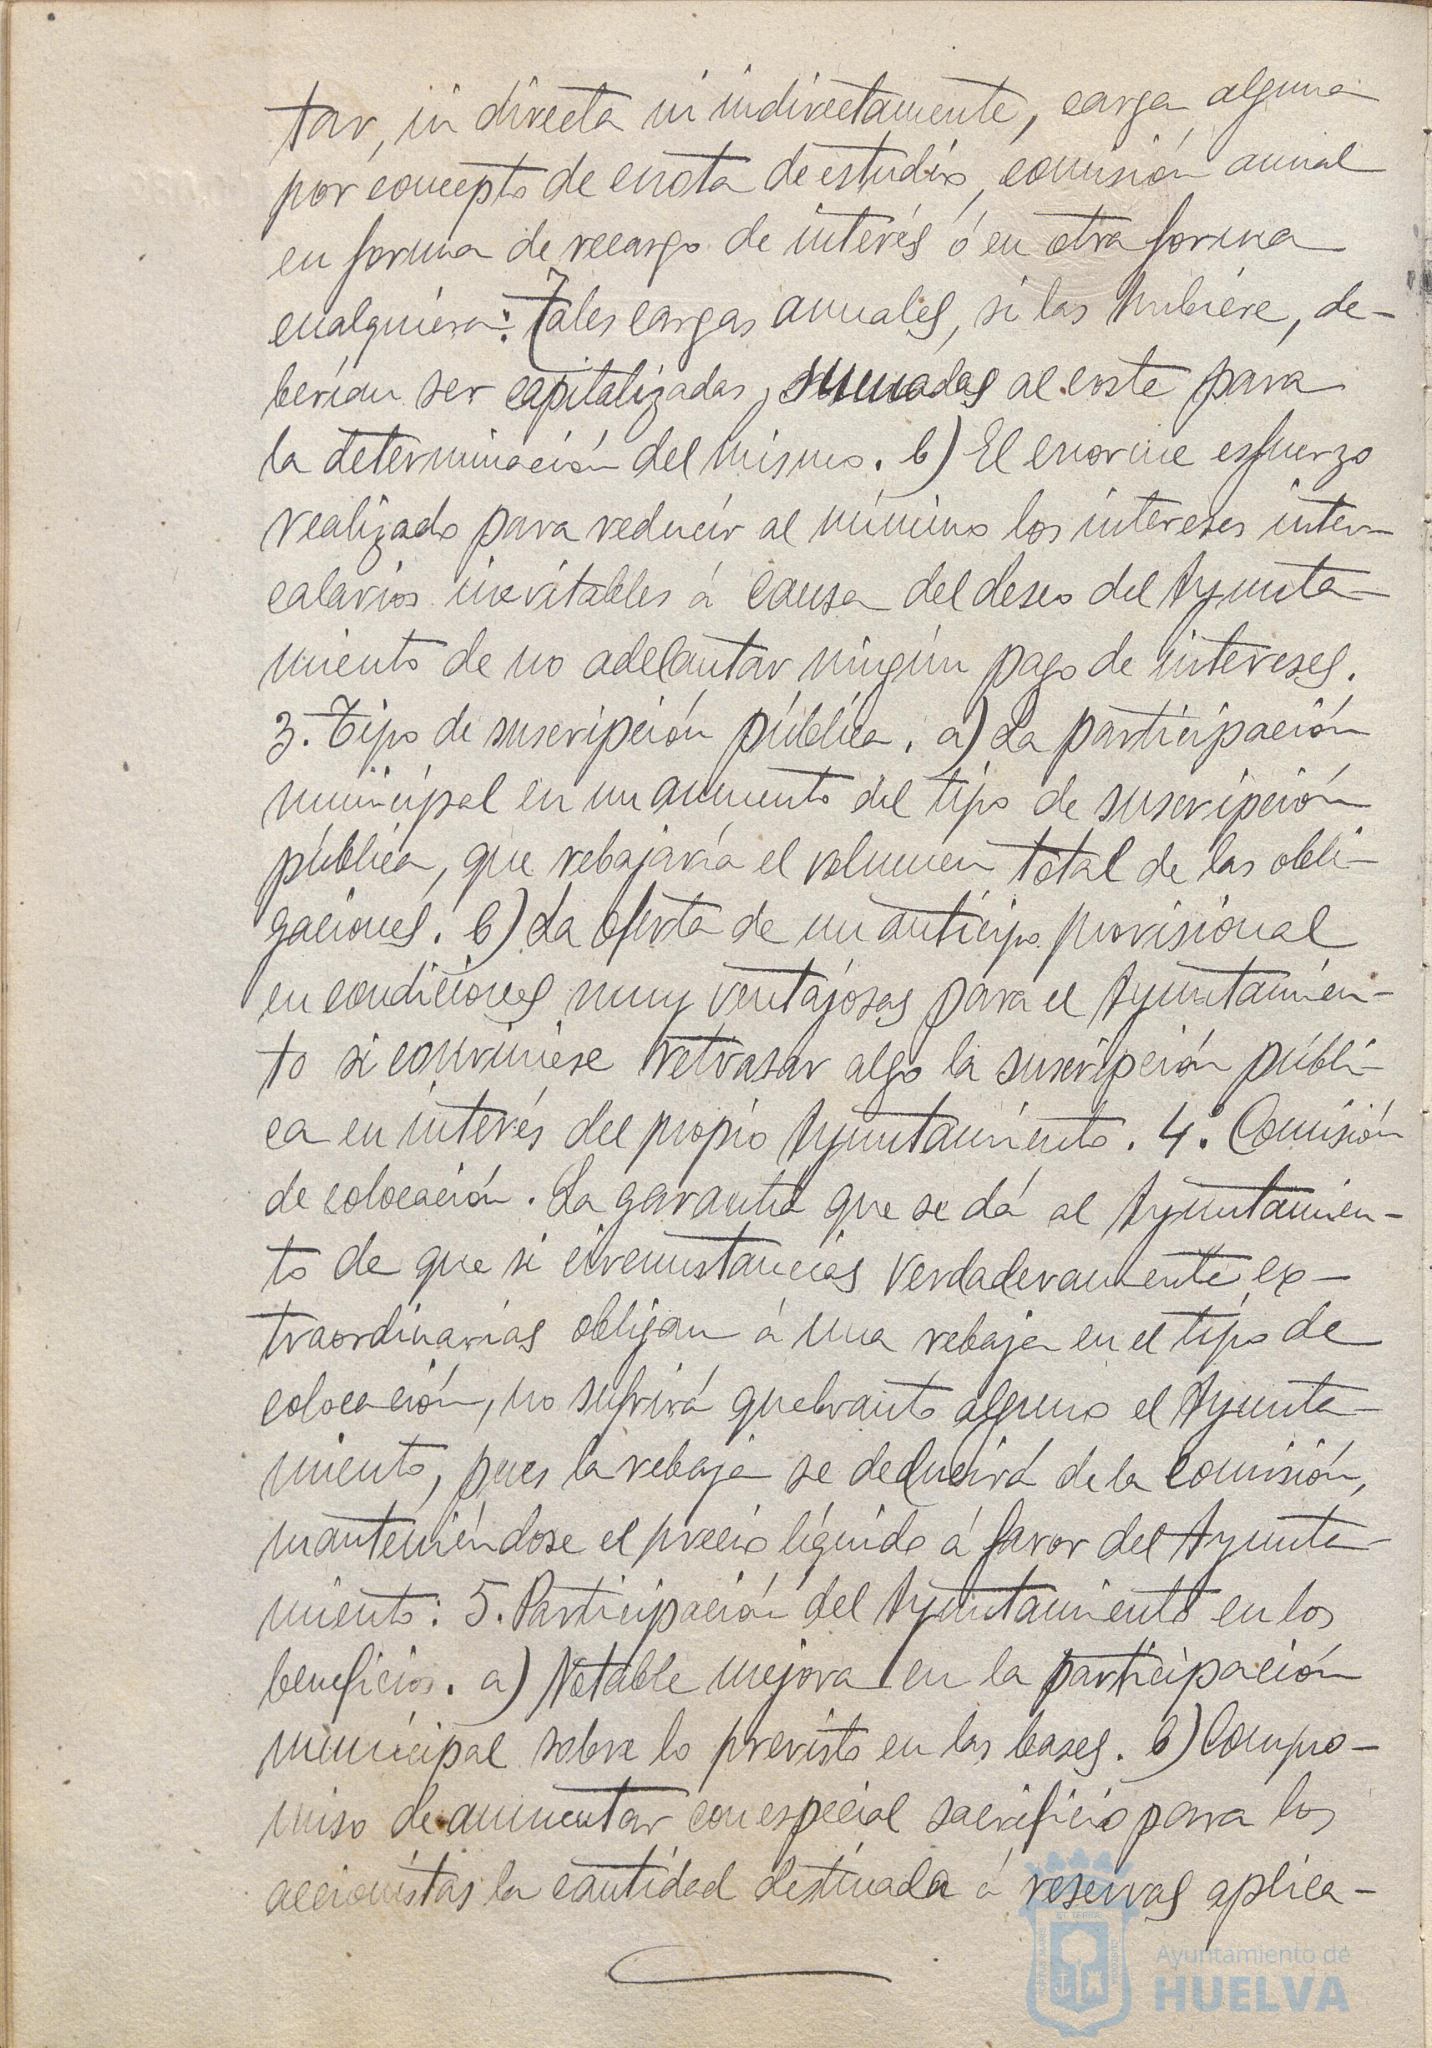 tar, ni directa ni indirectamente, carga alguna
por concepto de cuota de estudio, comisión anual
en forma de recargo de interés ó en otra forma
cualquiera: Tales cargas anuales, si las hubiere, de-
berían ser capitalizadas y sumadas al coste para
la determinación del mismo. b) El enorme esfuerzo
realizado para reducir al mínimo los intereses inter-
calarios inevitables á causa del deseo del Ayunta-
miento de no adelantar ningún pago de intereses.
3. Tipo de suscripción pública. a) La participación
municipal en un aumento del tipo de suscripción
pública, que rebajaría el volumen total de las obli-
gaciones. b) La oferta de un anticipo provisional
en condiciones muy ventajosas para el Ayuntamien-
to si conviniese retrasar algo la suscripción públi-
ca en interés del propio Ayuntamiento. 4. Comisión
de colocación. La garantía que se dá al Ayuntamien-
to de que si circunstancias verdaderamente ex-
traordinarias obligan á una rebaja en el tipo de
colocación, no sufrirá quebranto alguno el Ayunta-
miento, pues la rebaja se deducirá de la comisión,
manteniéndose el precio líquido á favor del Ayunta-
miento: 5. Participación del Ayuntamiento en los
beneficios. a) Notable mejora en la participación
municipal sobre lo previsto en las bases. b) Compro-
miso de aumentar con especial sacrificio para los
accionistas la cantidad destinada á reservas aplica-
Ayuntamiento de
HUELVA